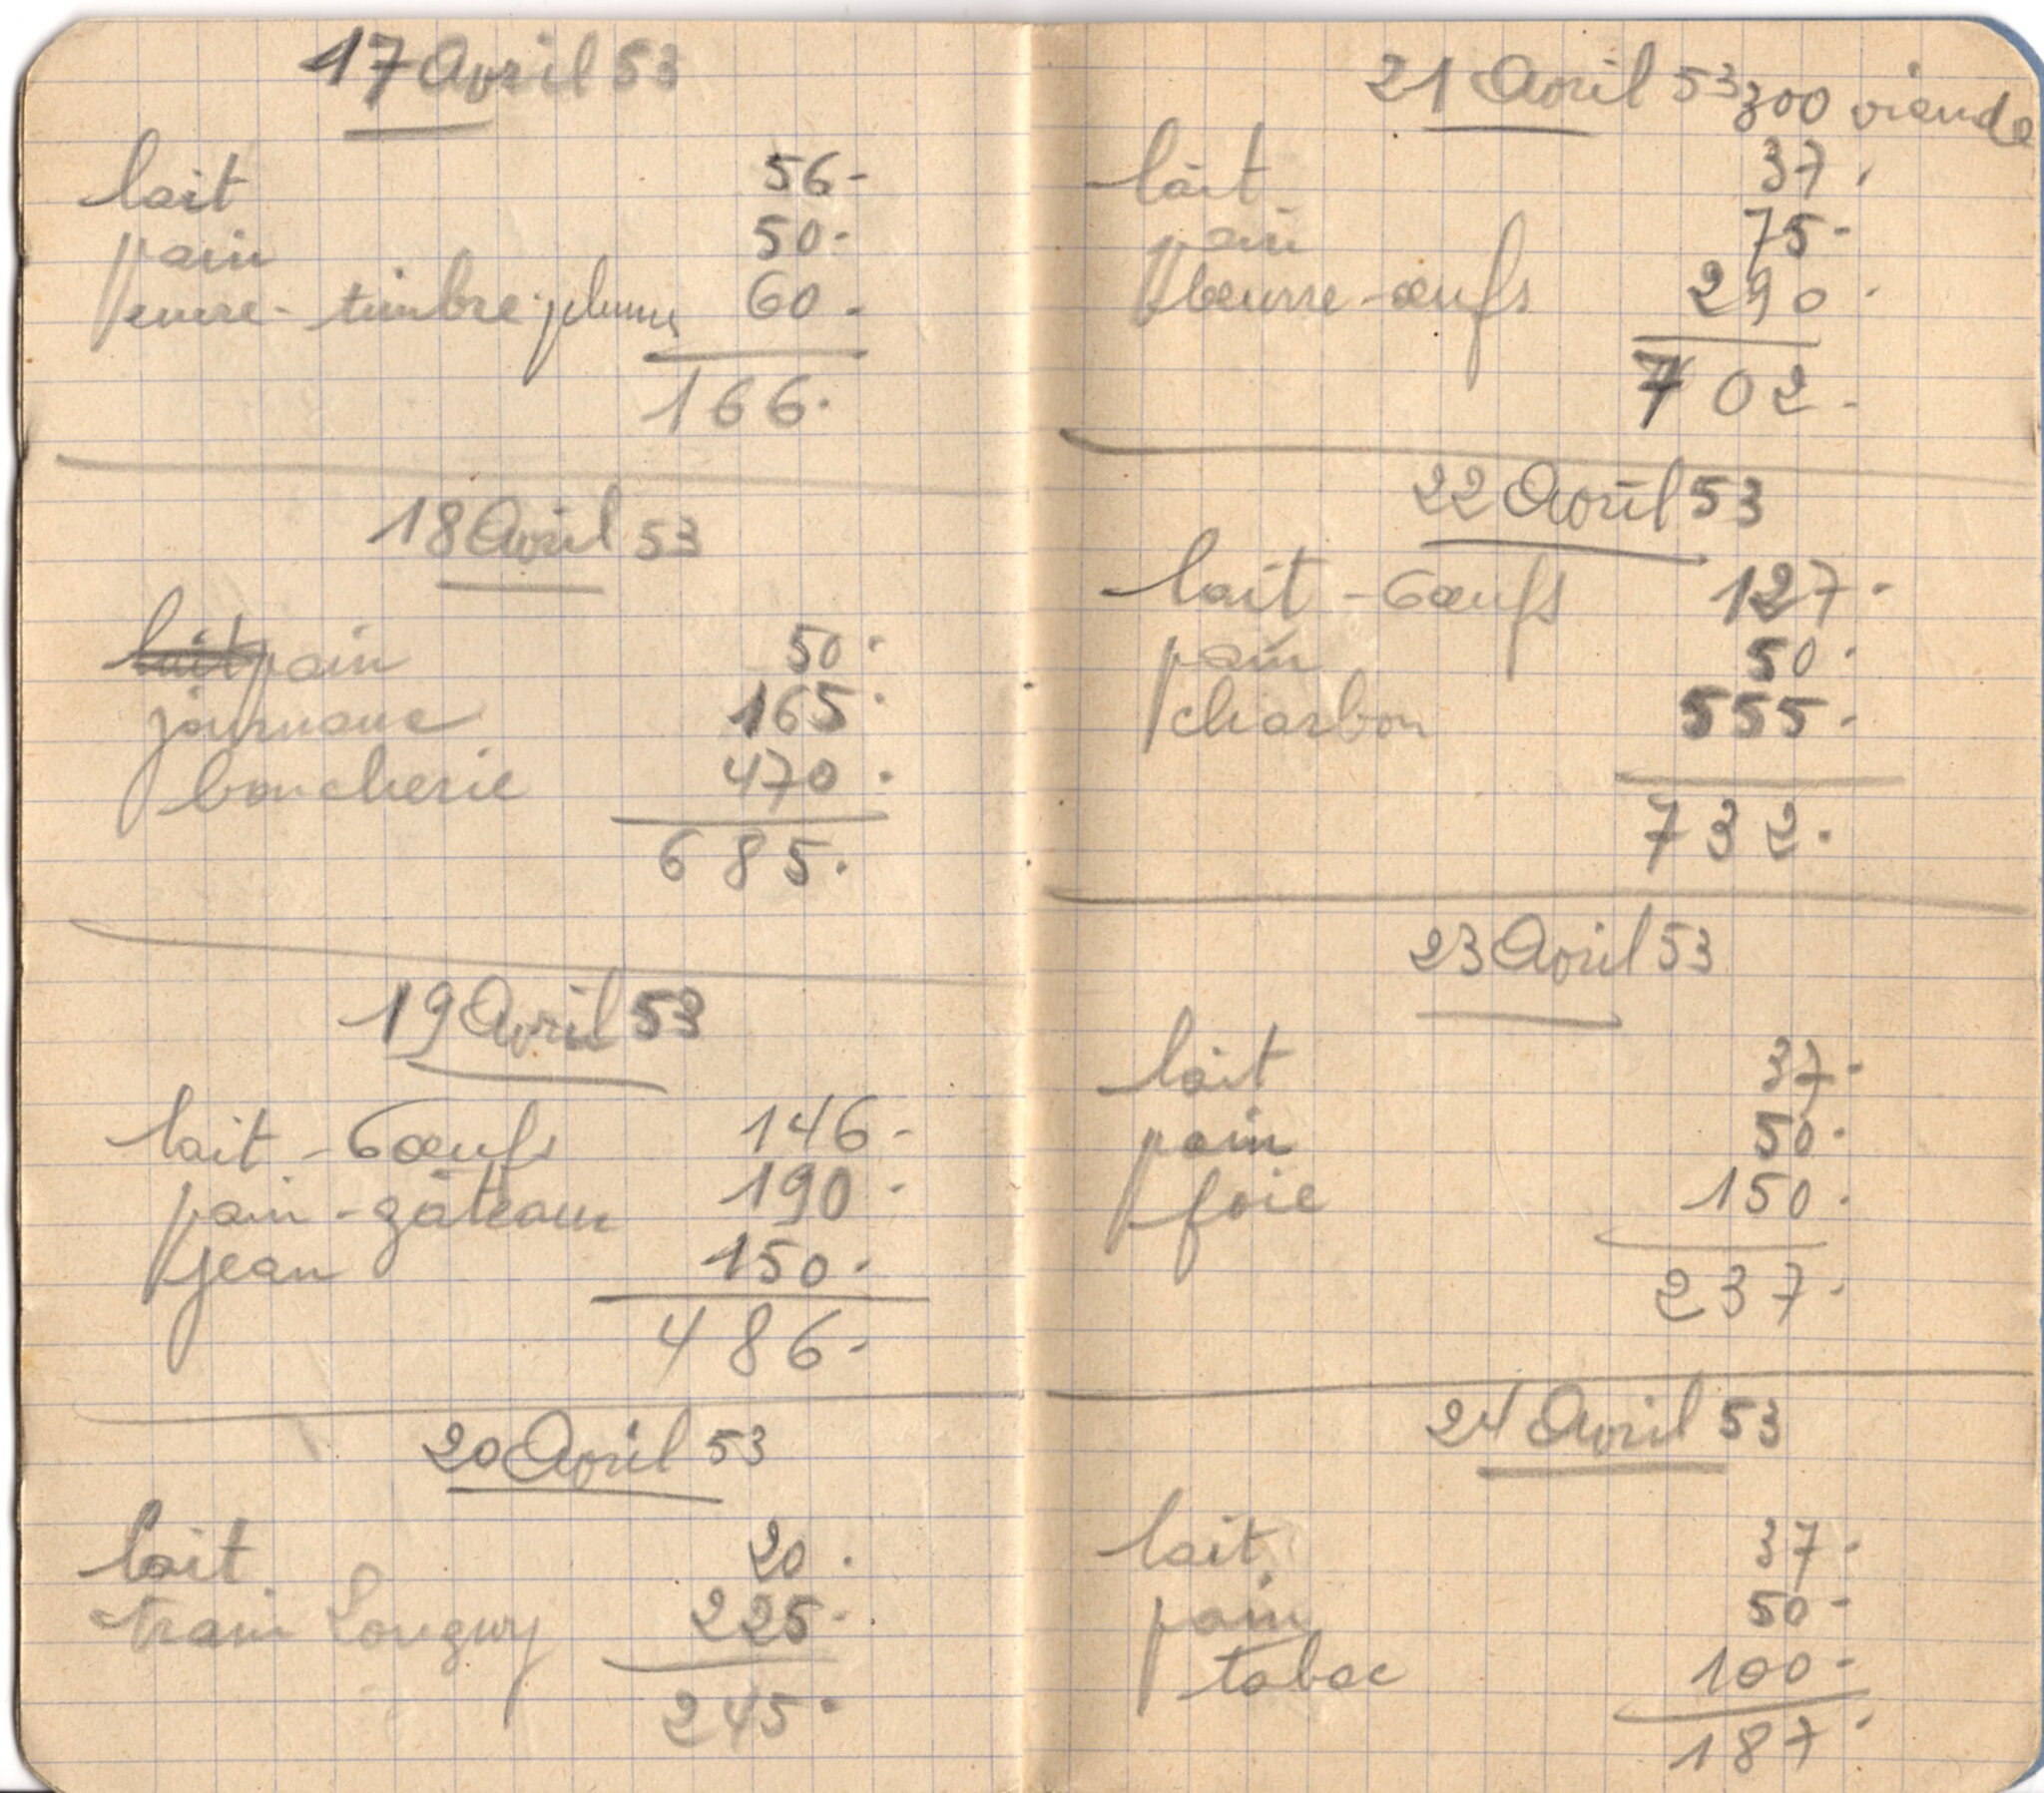 17 Avril 53
lait 56-
pain 50-
encre - timbre - plumes 60-
166.
18 Avril 53
lait pain 50.
journaux 165.
boucherie 470.
685.
19 Avril 53
lait - 6 œufs 146-
pain - gâteaux 190-
jean 150.
486-
20 Avril 53
lait 20.
train Longwy 225-
245.
21 Avril 53 300 viande
lait 37.
pain 75-
beurre - œufs 290.
702-
22 Avril 53
lait - 6 œufs 127-
pain 50.
charbon 555-
732.
23 Avril 53
lait 37-
pain 50.
foie 150.
237.
24 Avril 53
lait 37-
pain 50-
tabac 100-
187.